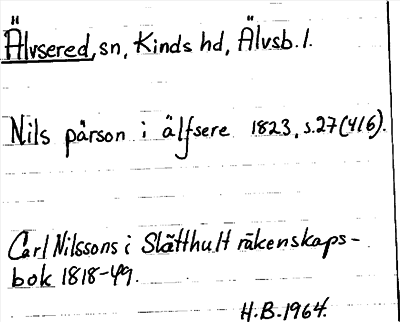 Älvsered, sn, Kinds hd, Älvsb. l.
Nils pärson i älfsere 1823, s.27 (4/6).
Carl Nilssons i Slätthult räkenskaps-
bok 1818-49.
H.B.1964.